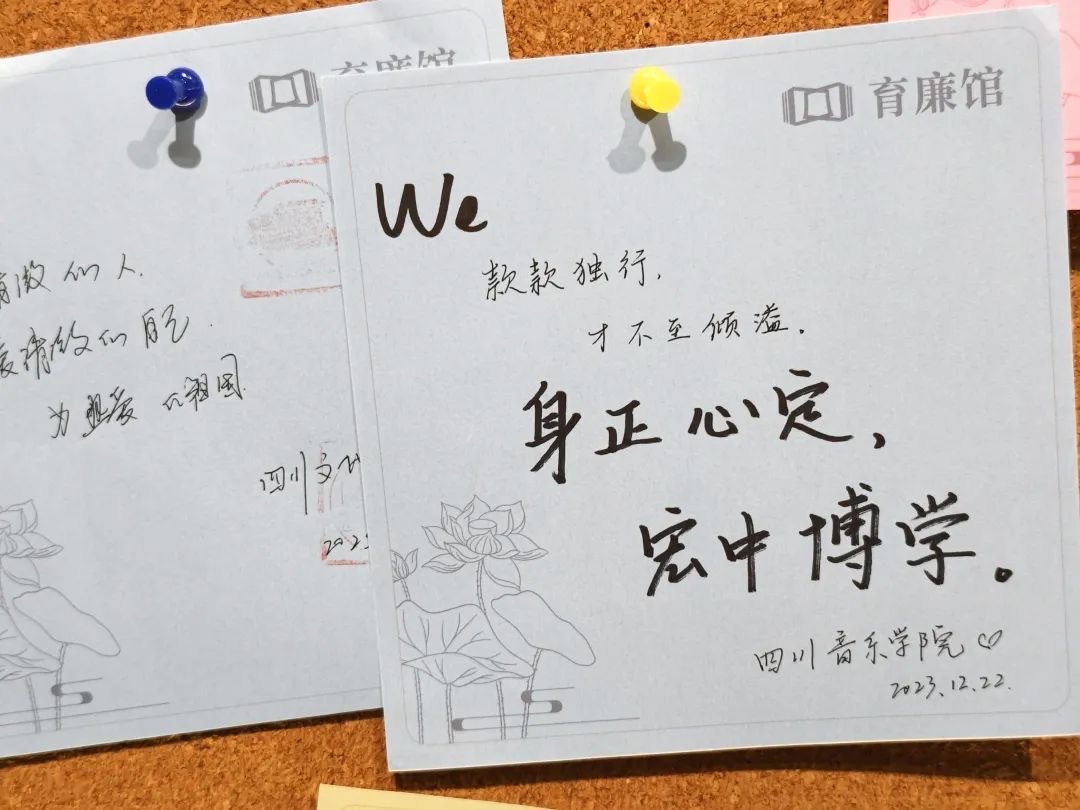 育廉馆
为
祖国
四川文化
2023
育廉馆
We
款款独行,
才不至倾溢。
身正心定,
宏中博学。
四川音乐学院♡
2023.12.22.